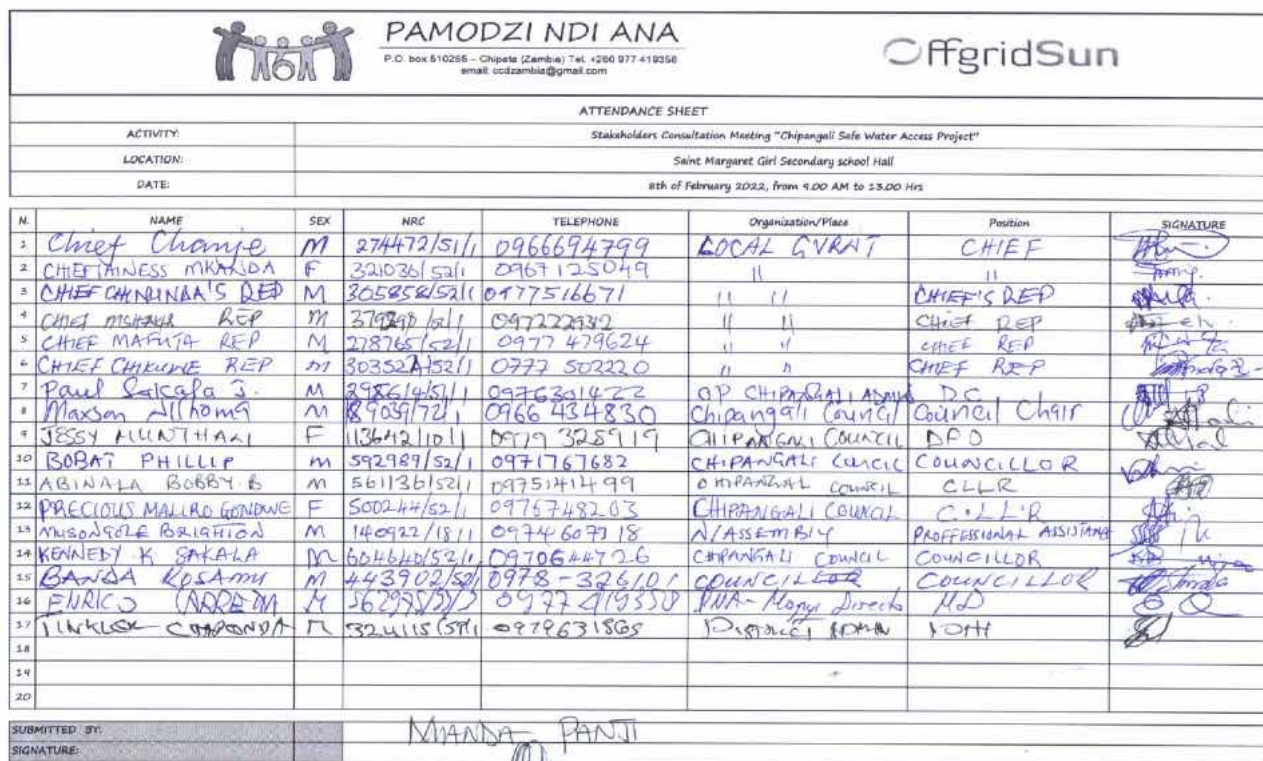 PAMODZI NDI ANA
P.O. box 510255 – Chipata (Zambia) Tel. +260 977 419358
email: ccdzambia@gmail.com
OffgridSun
ATTENDANCE SHEET
ACTIVITY: Stakeholders Consultation Meeting "Chipangali Safe Water Access Project"
LOCATION: Saint Margaret Girl Secondary school Hall
DATE: 8th of February 2022, from 9.00 AM to 13.00 Hrs
N. NAME SEX NRC TELEPHONE Organization/Place Position SIGNATURE
1 Chief Chanje M 274472/51/1 0966694799 LOCAL GVRNT CHIEF
2 CHIEFTAINESS MKANDA F 321036/52/1 0967125049 " "
3 CHIEF REP M 305858/52/1 0977516671 " " CHIEF'S REP
4 CHIEF REP M 097222932 " " CHIEF REP
5 CHIEF MAFUTA REP M 278765/52/1 0977 479624 " " CHIEF REP
6 CHIEF CHIKUWE REP M 0777 502220 " " CHIEF REP
7 Paul J. M 0976301422 OP CHIPANGALI D.C
8 Maxson M 0966 434830 Chipangali Council Council Chair
9 JESSY F 113642/10/1 0979 325919 CHIPANGALI COUNCIL DPO
10 BOBAT PHILLIP M 592989/52/1 0971767682 CHIPANGALI COUNCIL COUNCILLOR
11 ABINALA BOBBY. B M 561136/52/1 0975141499 CHIPANGALI COUNCIL CLLR
12 PRECIOUS MALIRO GONDWE F 500244/52/1 0976748203 CHIPANGALI COUNCIL C.LL.R
13 MUSONGOLE BRIGHTON M 140922/18/1 0974607318 N/ASSEMBLY PROFFESSIONAL ASSISTANT
14 KENNEDY K SAKALA M 604640/52/1 0970644726 CHIPANGALI COUNCIL COUNCILLOR
15 BANDA KOSAMU M 443902/52/1 0978-326101 COUNCILLOR COUNCILLOR
16 ENRICO M 0977 419358 PNA-
17 M 0979631865 DISTRICT ADMN
18
19
20
SUBMITTED BY: MIANDA PANJI
SIGNATURE: